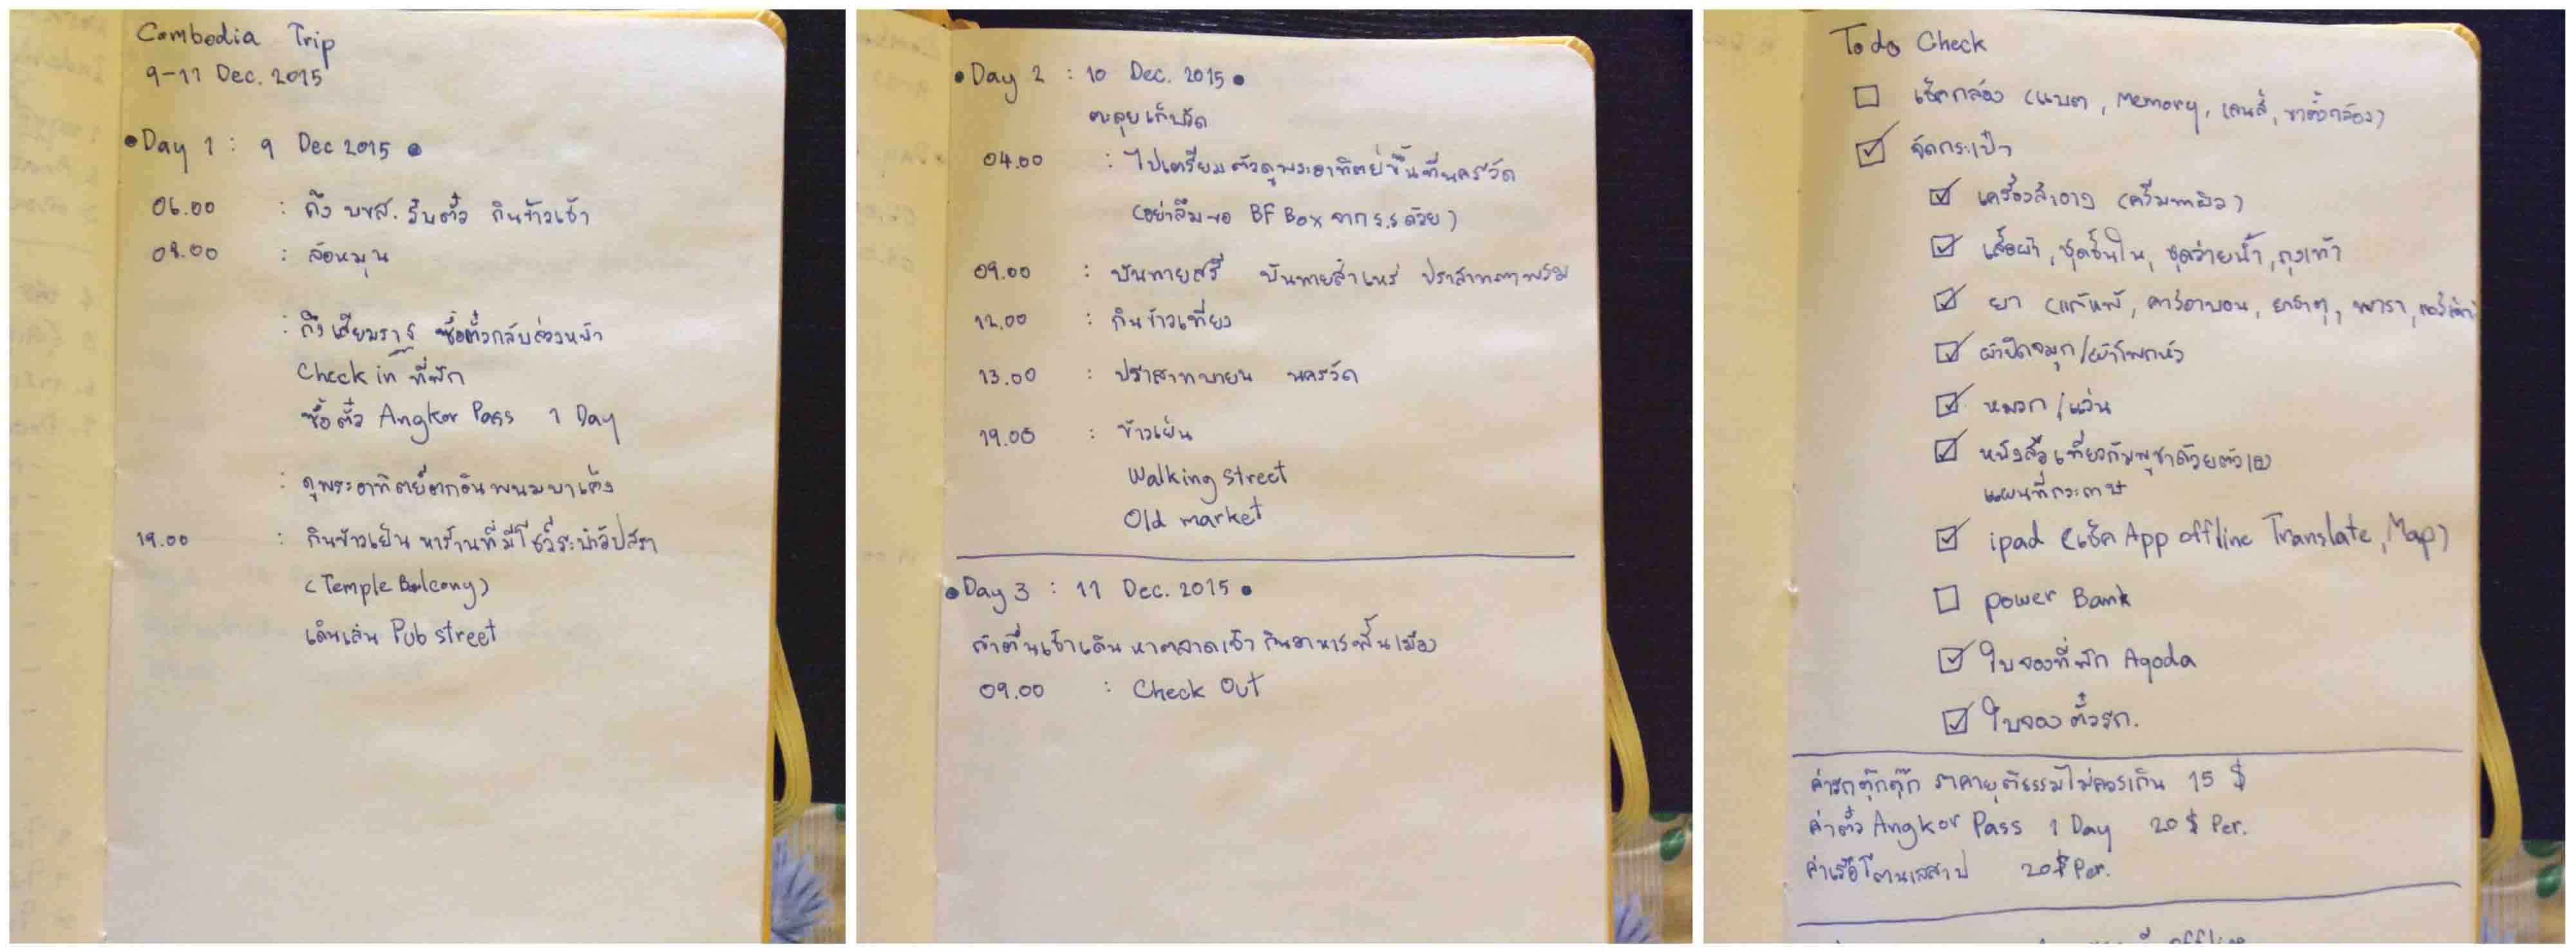 Cambodia Trip
9-11 Dec. 2015
•Day 1 : 9 Dec 2015 •
06.00 : ถึง บขส. รับตั๋ว กินข้าวเช้า
08.00 : ล้อหมุน
: ถึงเสียมราฐ ซื้อตั๋วกลับล่วงหน้า
Check in ที่พัก
ซื้อตั๋ว Angkor Pass 1 Day
: ดูพระอาทิตย์ตกดินพนมบาเค็ง
19.00 : กินข้าวเย็น หาร้านที่มีโชว์ระบำอัปสรา
(Temple Balcony)
เดินเล่น Pub street
•Day 2 : 10 Dec. 2015 •
ตะลุยเก็บวัด
04.00 : ไปเตรียมตัวดูพระอาทิตย์ขึ้นที่นครวัด
(อย่าลืมขอ BF Box จาก ร.ร ด้วย)
09.00 : บันทายสรี บันทายสำเหร่ ปราสาทตาพรหม
12.00 : กินข้าวเที่ยง
13.00 : ปราสาทบายน นครวัด
19.00 : ข้าวเย็น
Walking street
Old market
•Day 3 : 11 Dec. 2015 •
ถ้าตื่นเช้าเดินหาตลาดเช้า กินอาหารพื้นเมือง
09.00 : Check Out
Todo Check
เช็คกล้อง (แบต, Memory, เลนส์, ขาตั้งกล้อง)
จัดกระเป๋า
เครื่องสำอาง (ครีมทาผิว)
เสื้อผ้า, ชุดชั้นใน, ชุดว่ายน้ำ, ถุงเท้า
ยา (แก้แพ้, คาร์อาบอน, ยาธาตุ, พารา,
ผ้าปิดจมูก/ผ้าโพกหัว
หมวก/แว่น
หนังสือเที่ยวกัมพูชาด้วยตัวเอง
แผนที่กระดาษ
ipad (เช็ค App offline Translate, Map)
power Bank
ใบจองที่พัก Agoda
ใบจองตั๋วรถ.
ค่ารถตุ๊กตุ๊ก ราคายุติธรรมไม่ควรเกิน 15 $
ค่าตั๋ว Angkor Pass 1 Day 20 $ Per.
ค่าเรือโตนเลสาป 20 $ Per.
offline